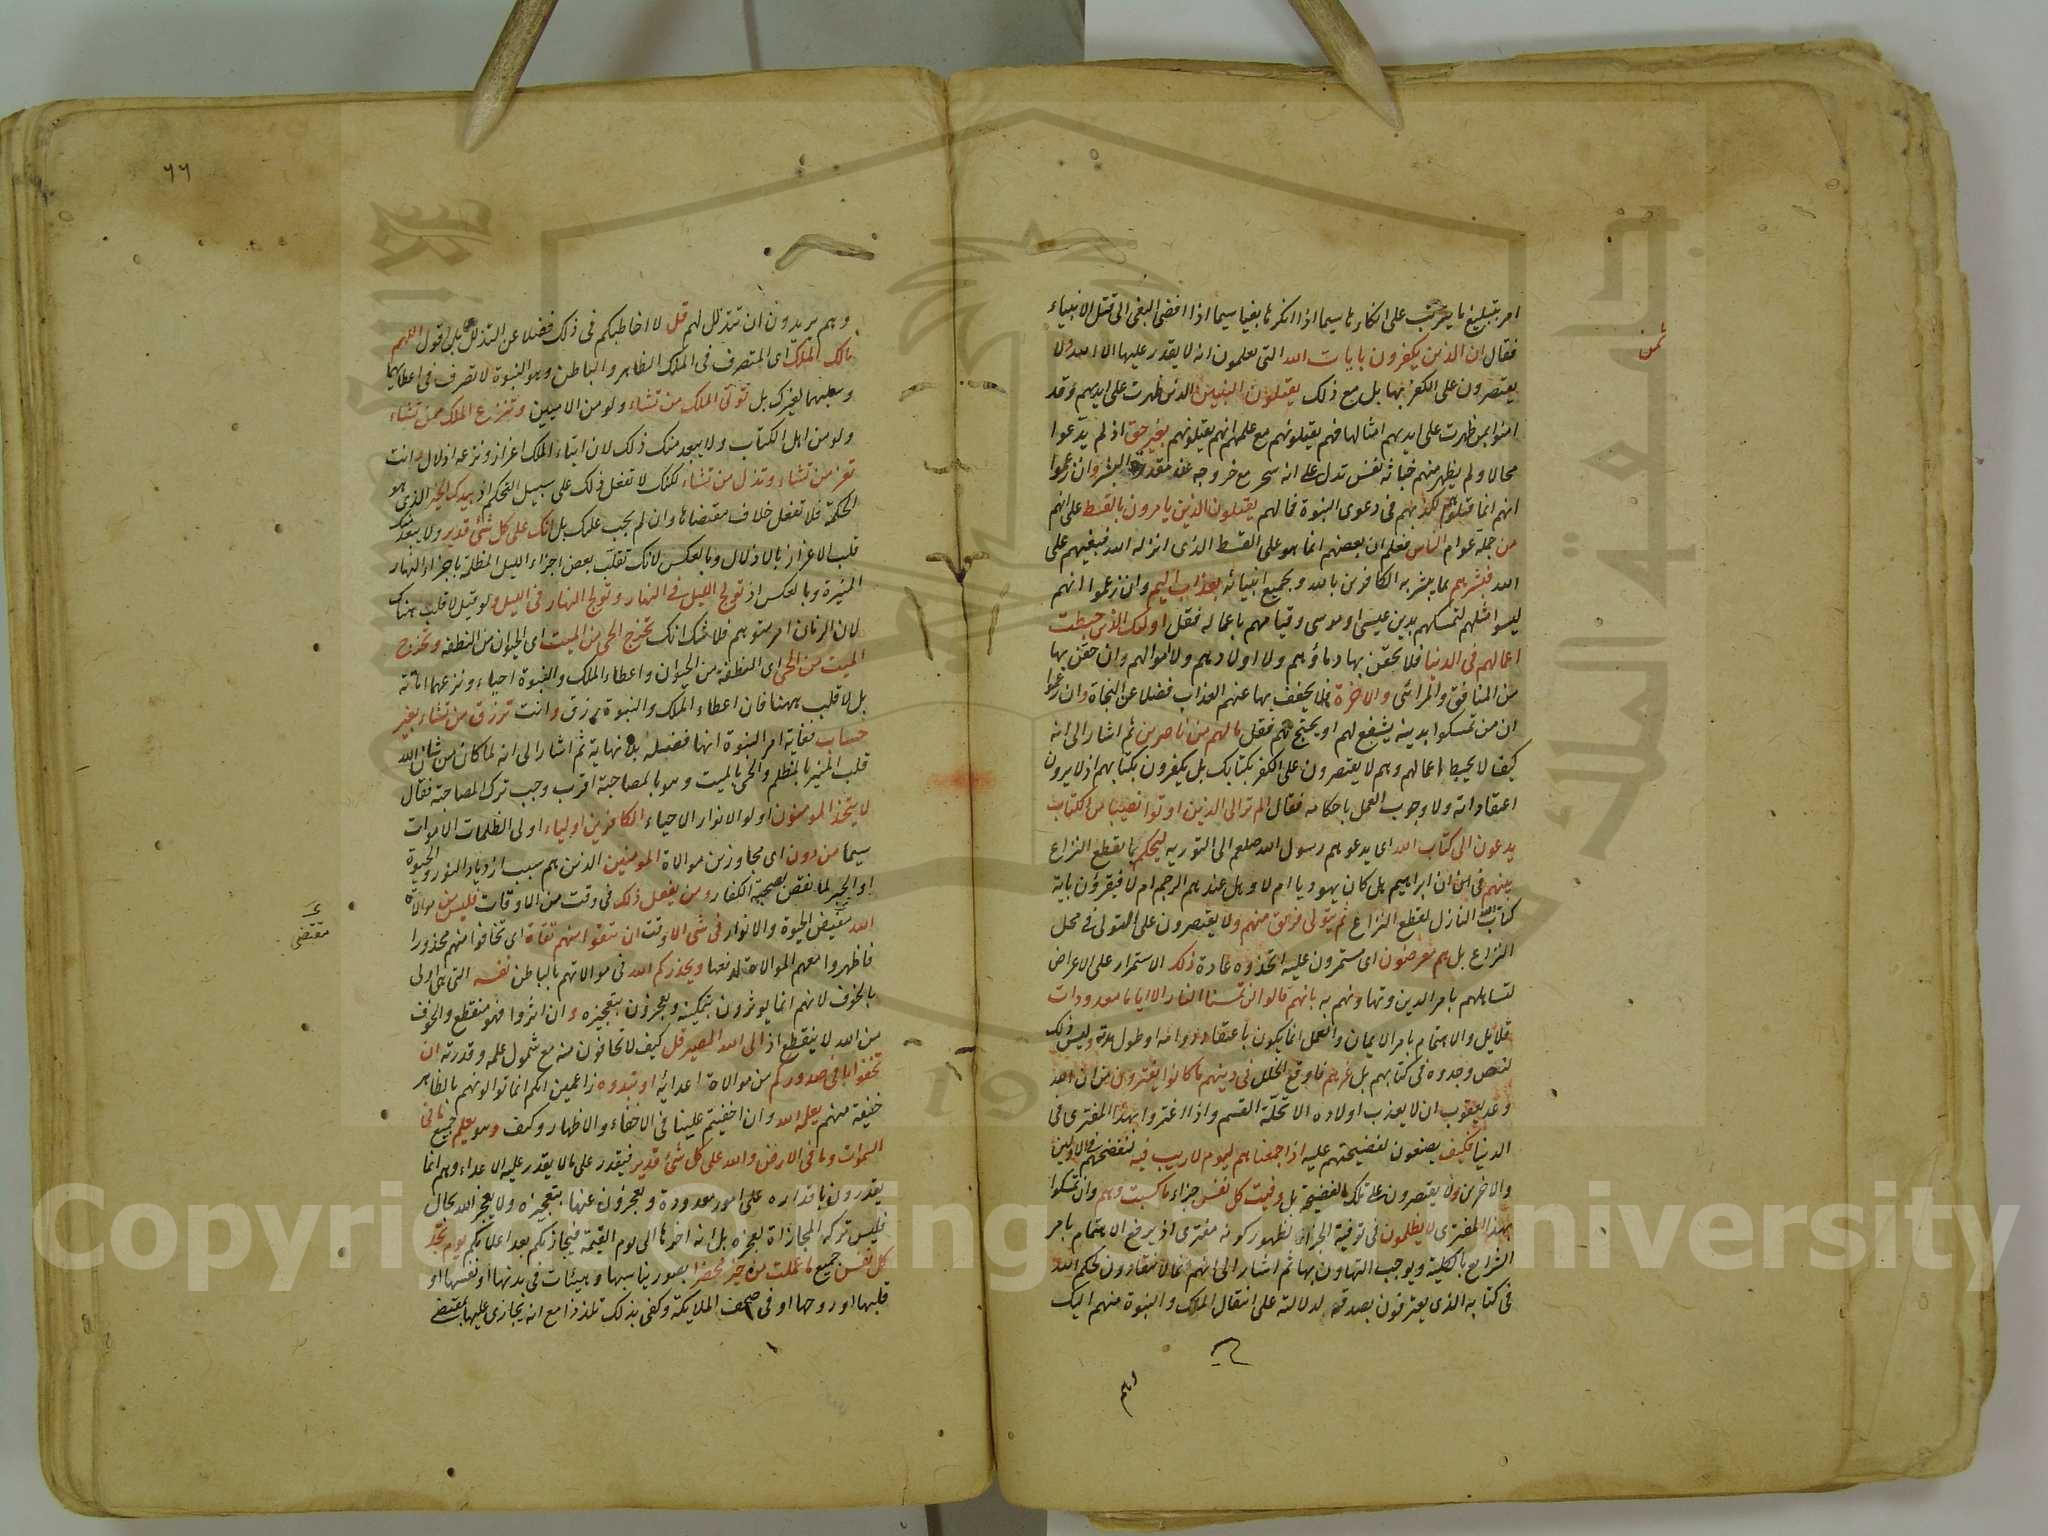 ثمن
امر بتبليغ ما يترتب على انكاره سيما اذا انكرها بغيا سيما اذا افضى البغى الى قتل الانبياء
فقال ان الذين يكفرون بايات الله التى يعلمون انه لا يقدر عليها الا الله ولا
يقتصرون على الكفر بها بل مع ذلك يقتلون النبيين الذين ظهرت على ايديهم وقد
امنوا بمن ظهرت على ايديهم امثالها فهم يقتلونهم مع علمهم انهم يقتلونهم بغير حق اذ لم يدعوا
محالا ولم يظهر منهم خباثة نفس تدل على انه سحر مع خروجه عن مقدور البشر وان زعموا
انهم انما قتلوهم لكذبهم فى دعوى النبوة فما لهم يقتلون الذين يامرون بالقسط على انهم
من جملة عوام الناس فعلم ان بعضهم انما هو على القسط الذى انزله الله فبغيهم على
الله فبشرهم بما يبشر به الكافرين بالله وبجميع انبيائه بعذاب اليم وان زعموا انهم
ليسوا مثلهم لتمسكهم بدين عيسى او موسى وقيامهم باعماله فقل اولئك الذين حبطت
اعمالهم فى الدنيا فلا يحقن بها دماؤهم ولا اولادهم ولا اموالهم وان حقن بها
من المنافق والمرائى والاخرة فلا يخفف بها عنهم العذاب فضلا عن النجاة وان زعموا
ان من تمسكوا بدينه يشفع لهم او يحتج لهم فقل ما لهم من ناصرين ثم اشار الى انه
كيف لا يحبط اعمالهم وهم لا يقتصرون على الكفر بكتابك بل يكفرون بكتابهم اذ لا يرون
اعتقاداته ولا وجوب العمل باحكامه فقال الم تر الى الذين اوتوا نصيبا من الكتاب
يدعون الى كتاب الله اى يدعوهم رسول الله صلعم الى التورية ليحكم بما يقطع النزاع
بينهم فى ان ابراهيم هل كان يهوديا ام لا وهل عندهم الرجم ام لا فيقرؤن باية
كتاب الله النازل لقطع النزاع ثم يتولى فريق منهم ولا يقتصرون على التولى فى محل
النزاع بل هم معرضون اى مستمرون عليه اتخذوه عادة ذلك الاستمرار على الاعراض
لتساهلهم بامر الدين وتهاونهم به بانهم قالوا لن تمسنا النار الا اياما معدودات
قلائل والاهتمام بامر الايمان والعمل انما يكون باعتقاد دوامه او طول مدته وليس ذلك
لنص وجدوه فى كتابهم بل غرهم فاوقع الخلل فى دينهم ما كانوا يفترون من ان الله
وعد يعقوب ان لا يعذب اولاده الا تحلة القسم واذا اغتروا بهذا المفترى فى
الدنيا فكيف يصنعون لفضيحتهم عليه اذا جمعناهم ليوم لا ريب فيه فنفضحهم بين الاولين
والاخرين ولا يقتصرون على تلك الفضيحة بل وفيت كل نفس جزاء ما كسبت وهم وان تمسكوا
بهذا المفترى لا يظلمون فى توفية الجزاء لظهور كونه مفترى اذ يرفع الاهتمام بامر
الشرايع بالكلية ويوجب التهاون بها ثم اشار الى انهم فما لا ينقادون لحكم الله
فى كتابه الذى يعترفون بصدقه لدلالته على انتقال الملك والنبوة منهم اليك
وهم
٦٦
وهم يريدون ان تتذلل لهم قل لا اخاطبكم فى ذلك فضلا عن التذلل بل اقول اللهم
مالك الملك اى المتصرف فى الملك الظاهر والباطن وهو النبوة لا تصرف فى اعطائهما
وسلبهما لغيرك بل تؤتى الملك من تشاء ولو من الاميين وتنزع الملك ممن تشاء
ولو من اهل الكتاب ولا يبعد منك ذلك لان ايتاء الملك اعزاز ونزعه اذلال وانت
تعز من تشاء وتذل من تشاء لكنك لا تفعل ذلك على سبيل التحكم اذ بيدك الخير الذى هو
الحكمة فلا تفعل خلاف مقتضاها وان لم يجب عليك بل انك على كل شئ قدير ولا يبعد منك
قلب الاعزاز بالاذلال وبالعكس لانك تقلب بعض اجزاء الليل المظلمة باجزاء النهار
المنيرة وبالعكس اذ تولج الليل فى النهار وتولج النهار فى الليل ولو قيل لا قلب هناك
لان الزمان امر متوهم فلا شك انك تخرج الحى من الميت اى الحيوان من النطفة وتخرج
الميت من الحى اى النطفة من الحيوان واعطاء الملك والنبوة احياء ونزعهما اماتة
بل لا قلب ههنا فان اعطاء الملك والنبوة رزق وانت ترزق من تشاء بغير
حساب فغاية امر النبوة انها فضيلة بلا نهاية ثم اشار الى انه لما كان من شان الله
قلب المنير بالمظلم والحى بالميت وهو بالمصاحبة اقرب وجب ترك المصاحبة فقال
لا يتخذ المومنون اولو الانوار الاحياء الكافرين اولياء اولى الظلمات الاموات
سيما من دون اى مجاوزين موالاة المومنين الذين هم سبب ازدياد النور والحيوة
او الجبر لما نقص بصحبة الكفار ومن يفعل ذلك فى وقت من الاوقات فليس من موالاة
الله مفيض الحيوة والانوار فى شئ الا وقت ان تتقوا منهم تقاة اى تخافوا منهم محذورا
فاظهروا معهم الموالاة لدفعها ويحذركم الله فى موالاتهم بالباطن نفسه التى هى اولى
بالخوف لانهم انما يوثرون بتمكينه ويعجزون بتعجيزه وان اثروا فهو منقطع والخوف
من الله لا ينقطع اذ الى الله المصير قل كيف لا تخافون منه مع شمول علمه وقدرته ان
تخفوا ما فى صدوركم من موالاة اعدائه او تبدوه زاعمين انكم انما توالونهم بالظاهر
خيفة منهم يعلمه الله وان اخفيتم علينا فى الاخفاء والاظهار وكيف وهو يعلم جميع ما فى
السموات وما فى الارض والله على كل شئ قدير فيقدر على ما لا يقدر عليه الاعداء وهم انما
يقدرون باقداره على امور معدودة ويعجزون عنها بتعجيزه ولا يعجز الله بحال
فليس تركه المجازاة لعجزه بل انه اخرها الى يوم القيمة فيجازيكم بعد اعلامكم يوم تجد
كل نفس جميع ما عملت من خير محضرا بصور يناسبها وهيئات فى بدنها او نفسها او
قلبها او روحها او فى صحف الملايكة وكفى بذلك تلذذا مع انه يجازى عليها بمقتضى
مقتضى
Copyright © King Saud University
جامعة الملك سعود